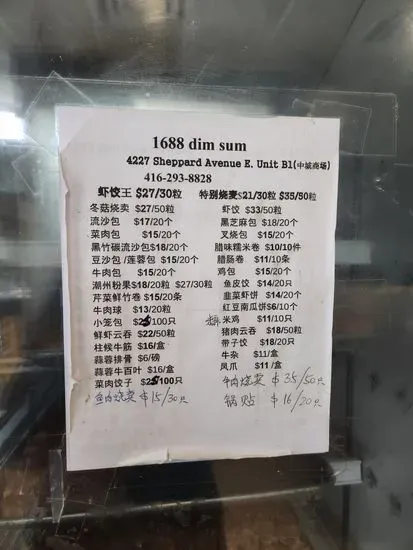 1688 dim sum
4227 Sheppard Avenue E. Unit B1(中城商场)
416-293-8828
虾饺王 $27/30粒 特别烧麦$21/30粒 $35/50粒
冬菇烧卖 $27/50粒 虾饺 $33/50粒
流沙包 $17/20个 黑芝麻包 $18/20个
菜肉包 $15/20个 叉烧包 $15/20个
黑竹碳流沙包$18/20个 腊味糯米卷 $10/10件
豆沙包/莲蓉包 $15/20个 腊肠卷 $11/10条
牛肉包 $15/20个 鸡包 $15/20个
潮州粉果$18/20粒 $27/30粒 鱼皮饺 $14/20只
芹菜鲜竹卷 $15/20条 韭菜虾饼 $14/20个
牛肉球 $13/20粒 红豆南瓜饼$6/10个
小笼包 /100只 米鸡 $11/10只
鲜虾云吞 $22/50粒 猪肉云吞 $18/50粒
柱候牛筋 $16/盒 带子饺 $18/20只
蒜蓉排骨 $6/磅 牛杂 $11/盒
蒜蓉牛百叶 $16/盒 凤爪 $11/盒
菜肉饺子 /100只 牛肉烧卖 $35/50只
鱼肉烧卖 $15/30只 锅贴 $16/20只